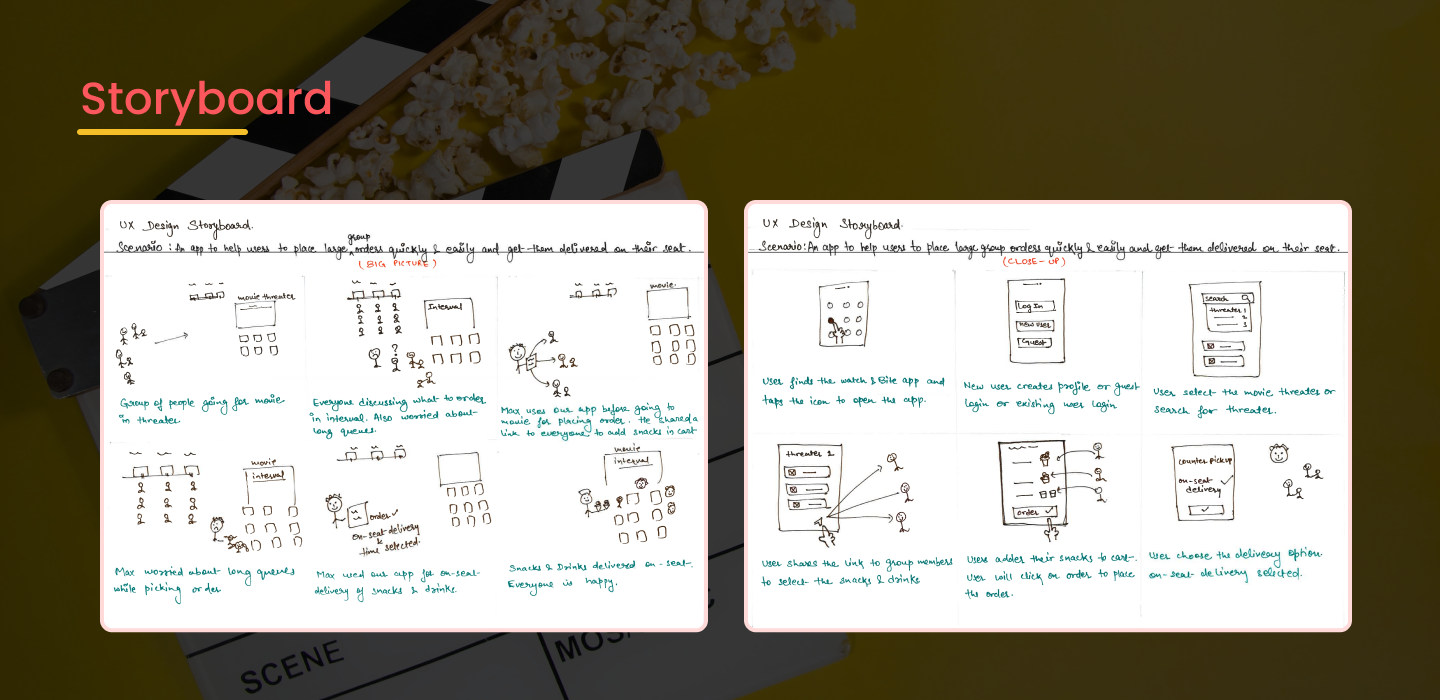 Storyboard
UX Design Storyboard.
group
Scenario : An app to help users to place large orders quickly & easily and get them delivered on their seat.
(BIG PICTURE)
movie threater
Group of people going for movie
in threater
Interval
?
Everyone discussing what to order
in interval. Also worried about
long queues.
movie.
Max uses our app before going to
movie for placing order. He shared a
link to everyone to add snacks in cart
movie
interval
Max worried about long queues
while picking order
order ✓
on-seat delivery
&
time selected.
Max used our app for on-seat
delivery of snacks & drinks.
movie
interval
Snacks & Drinks delivered on-seat.
Everyone is happy.
UX Design Storyboard.
Scenario: An app to help users to place large group orders quickly & easily and get them delivered on their seat.
(CLOSE-UP)
User finds the watch & Bite app and
taps the icon to open the app.
Log In
New user
Guest
New user creates profile or guest
login or existing user login
search
threater 1
2
3
User select the movie threater or
search for threater.
threater 1
User shares the link to group members
to select the snacks & drinks
order ✓
Users adder their snacks to cart.
User will click on order to place
the order.
counter pickup
on-seat ✓
delivery
✓
User choose the delivery option.
on-seat delivery selected.
SCENE